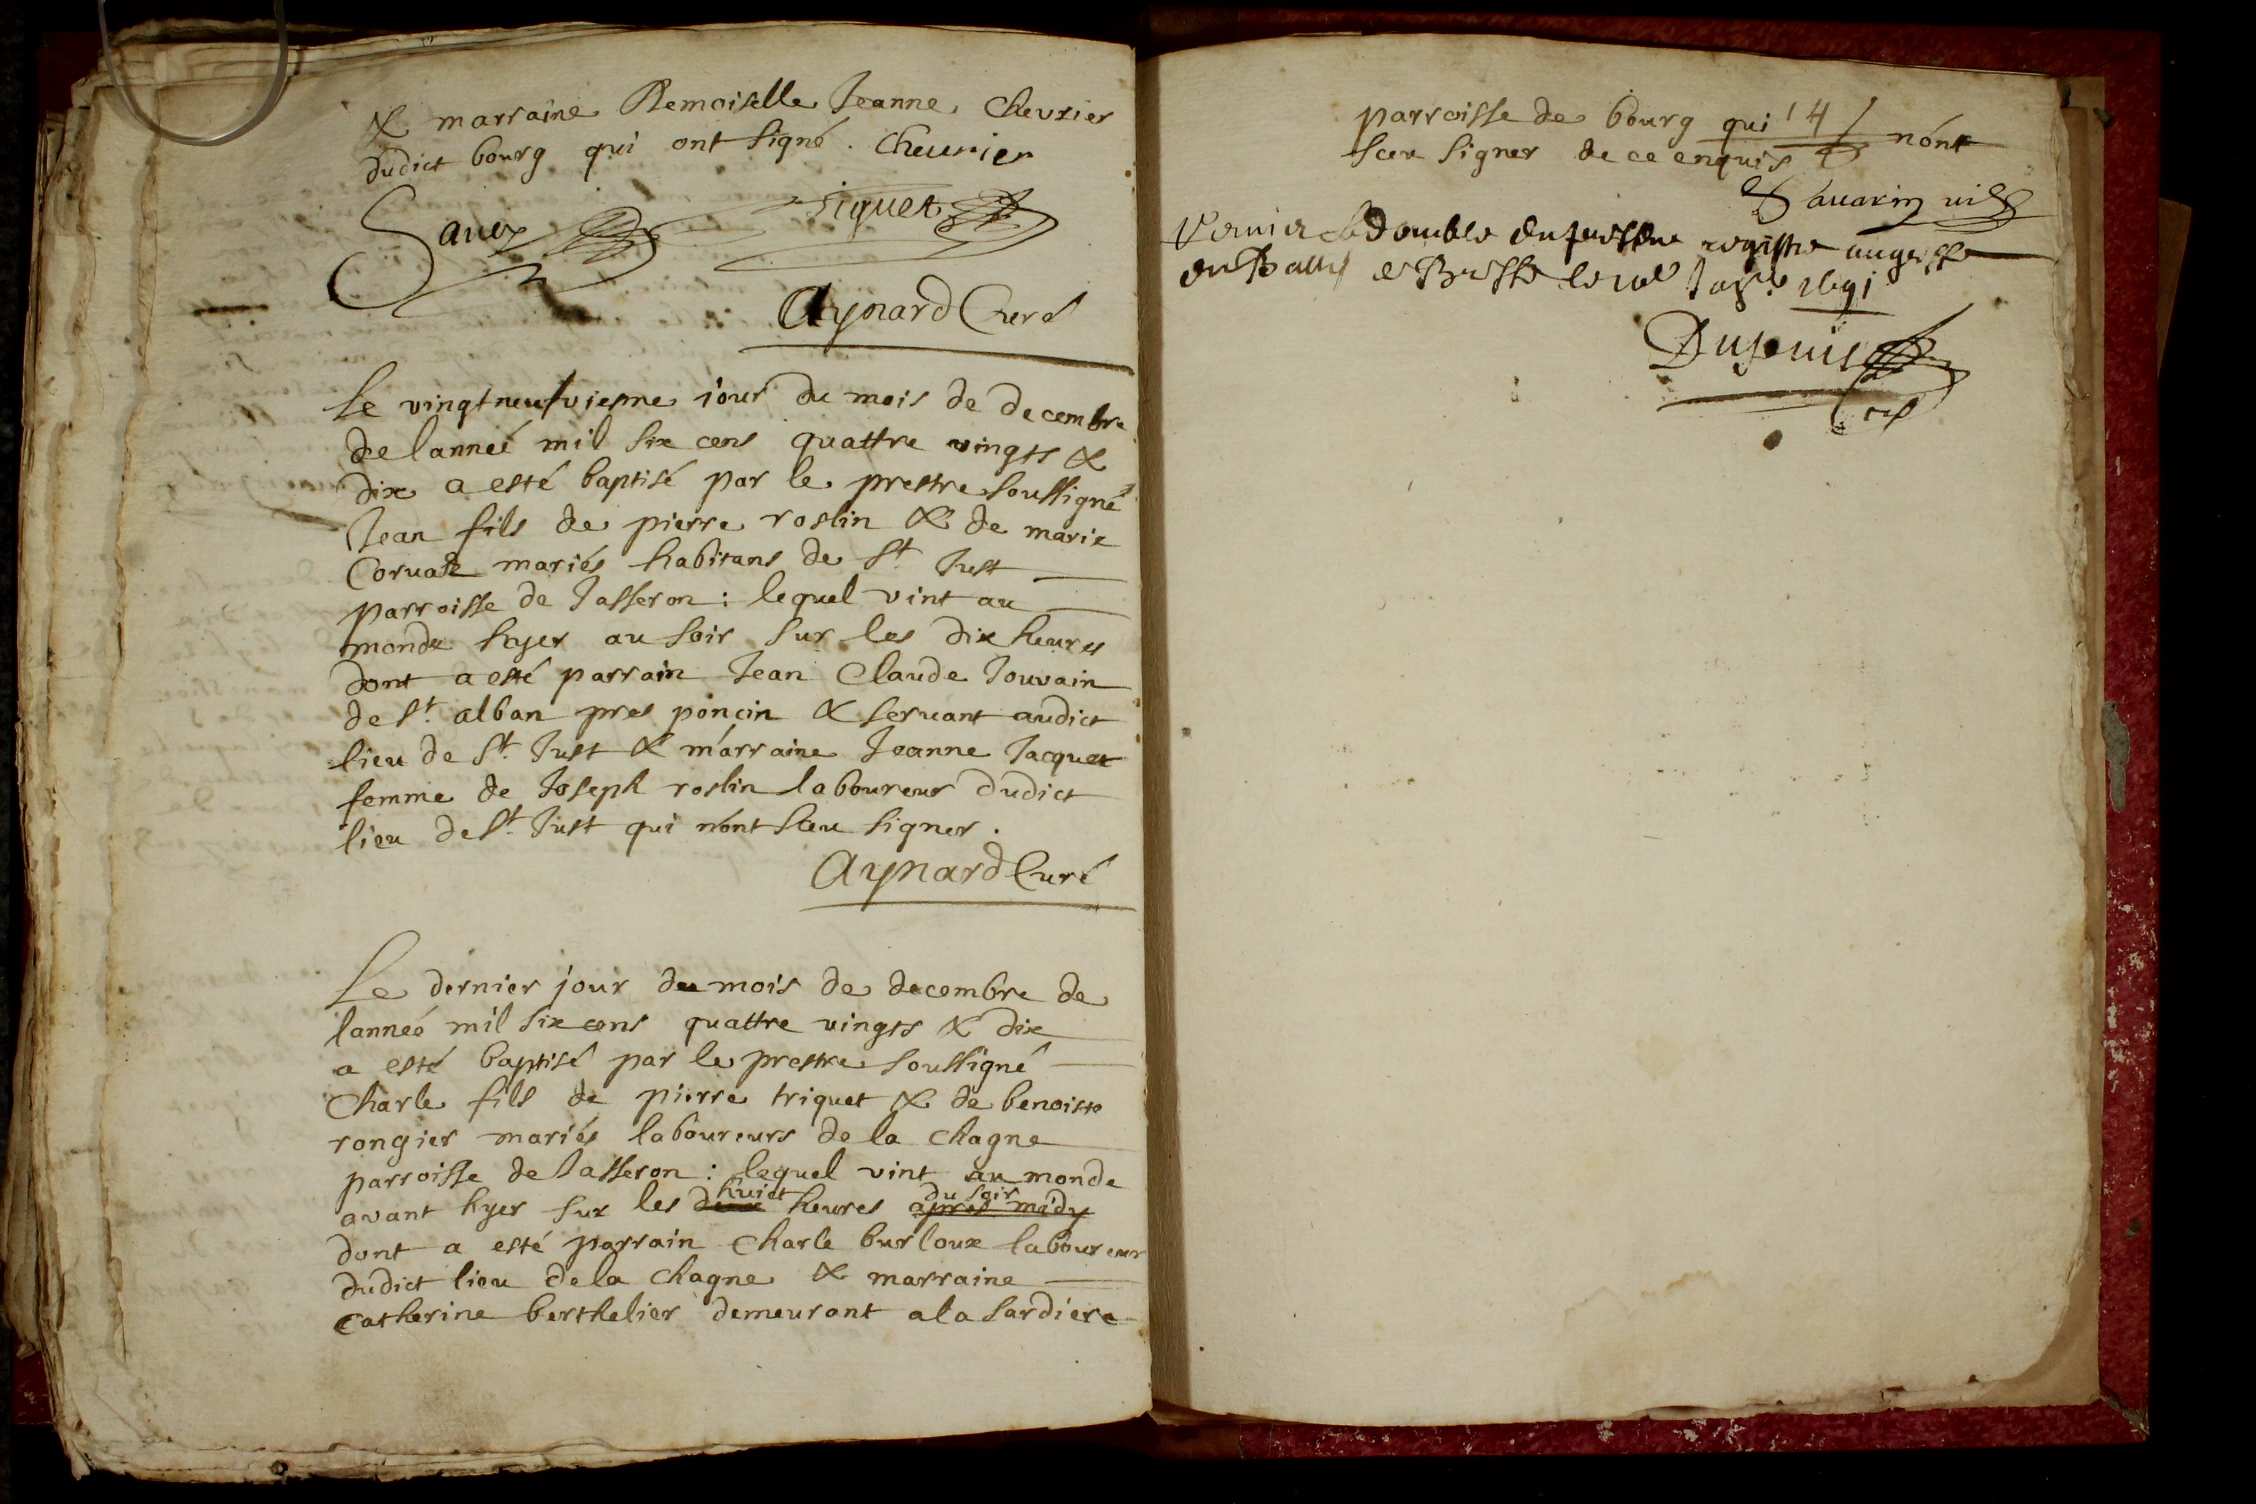 & marraine Demoiselle Jeanne Chevrier
dudict bourg qui ont signé. Chevrier
Aynard Curé
Le vingt neufviesme jour du mois de decembre
de lanneé mil six cens quattre vingts &
dix a esté baptisé par le prestre soussigné
Jean fils de pierre roslin & de marie
mariés habitans de St Just
parroisse de Jasseron: lequel vint au
monde hyer au soir sur les dix heures
dont a esté parrain Jean Claude Jouvain
de St. alban pres poncin & servant audict
lieu de St. Just & marraine Jeanne Jacquet
femme de Joseph roslin laboureur dudict
lieu de St. Just qui n'ont sceu signer.
Aynard Curé
Le dernier jour du mois de decembre de
lanneé mil six cens quattre vingts & dix
a esté baptisé par le prestre soussigné
Charle fils de pierre triquet & de benoiste
rongier mariés laboureurs de la chagne
parroisse de Jasseron: lequel vint au monde
huict du soir
avant hyer sur les deux heures apres midy
dont a esté parrain Charle burloux laboureur
dudict lieu de la chagne & marraine
Catherine berthelier demeurant a la sardiere
parroisse de bourg qui 14 n'ont
sceu signer de ce enquis
Savarin
le double du present registre au greffe
du Ballî de Bresse le 1691
Dupuis